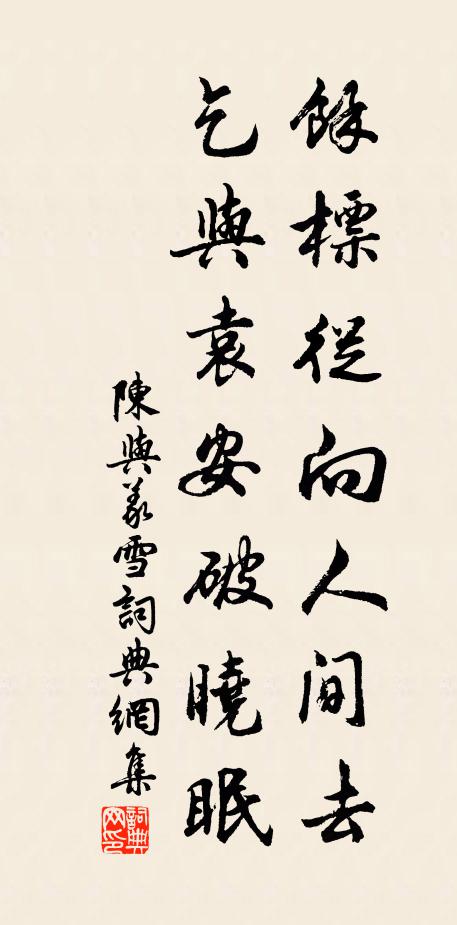 餘標從向人間去
乞與袁安破曉眠
陳與義雪詞典網集
詞典网印